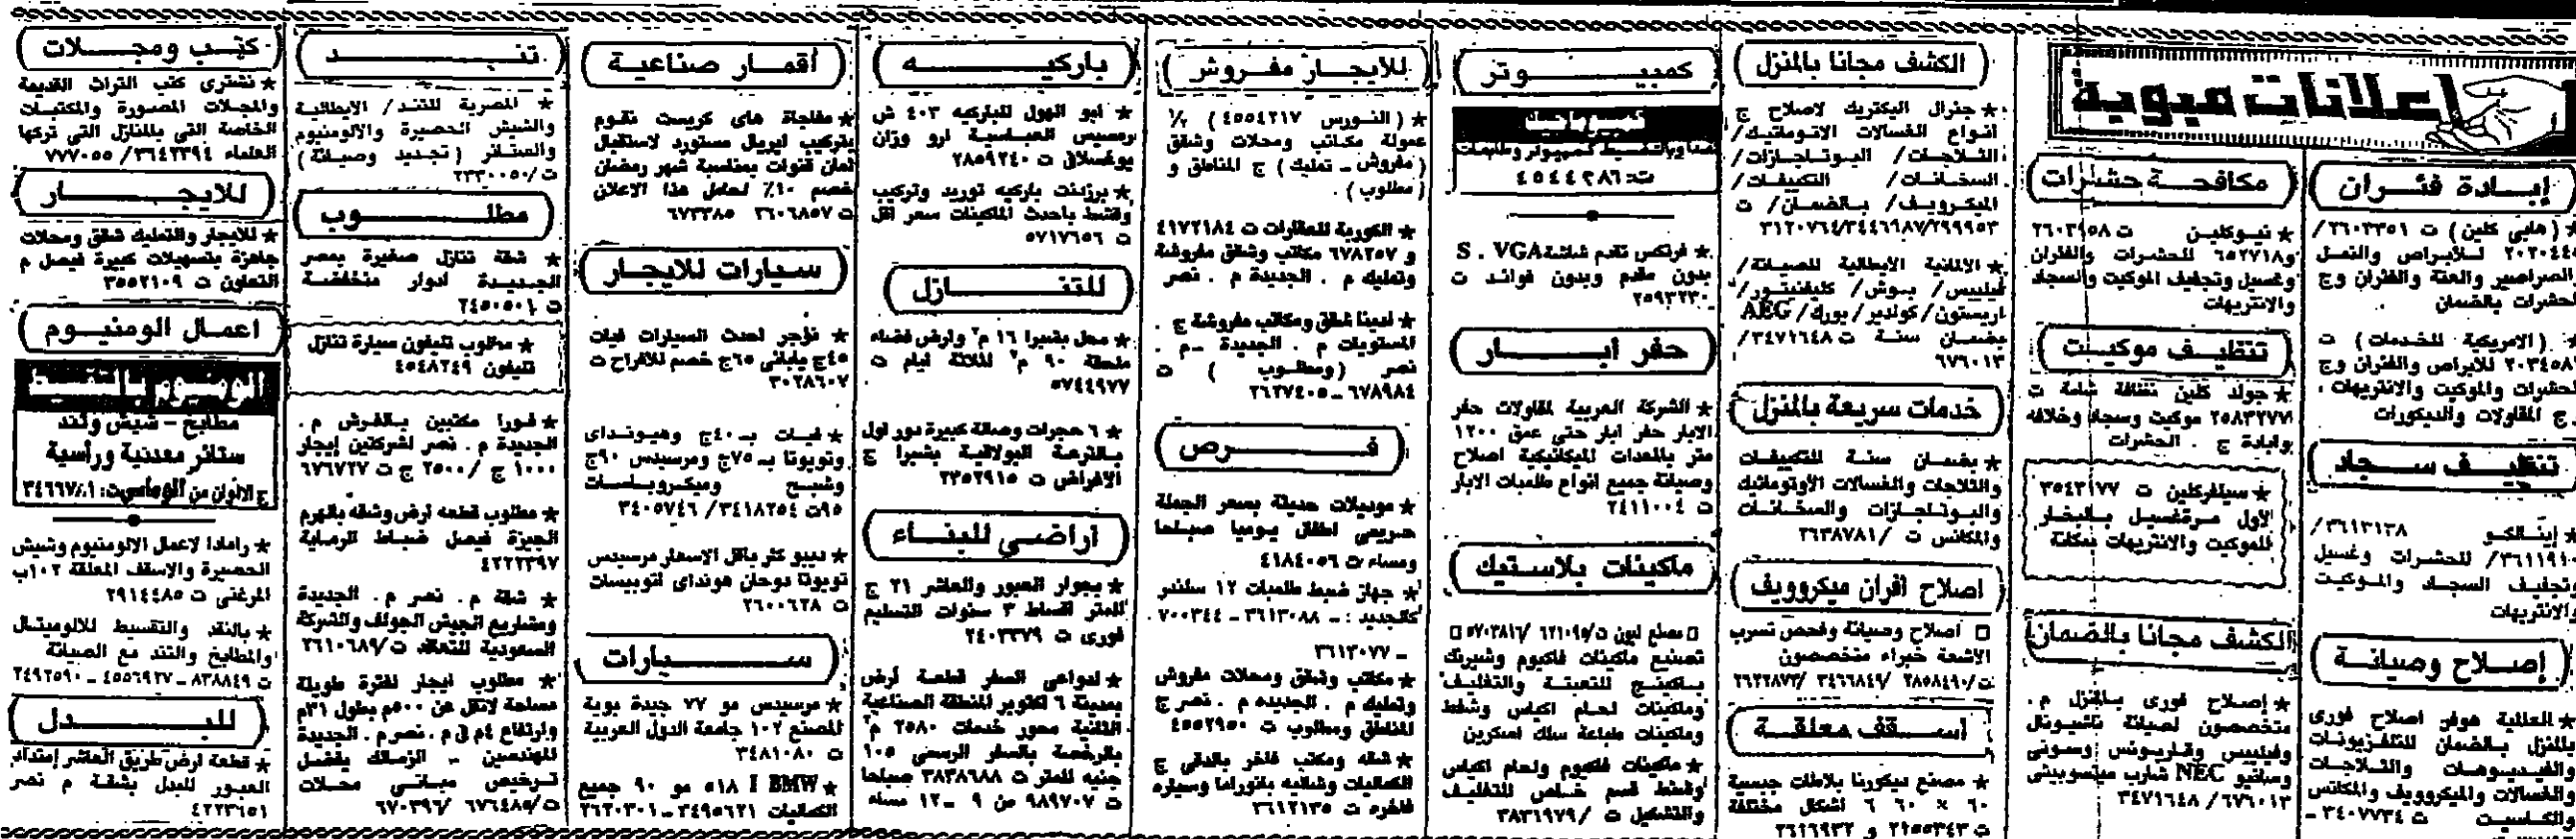 إعلانات مبوبة
إبادة فئران
★ (هابي كلين) ت ٢٦٠٣٣٥١/
٢٠٢٠٤٤٥ للأبراص والنمل
والصراصير والعتة والفئران وج
الحشرات بالضمان
★ (الأمريكية للخدمات) ت
٢٠٣٤٥٨٦ للأبراص والفئران وج
الحشرات والموكيت والانتريهات ،
ج المقاولات والديكورات
تنظيف سجاد
★ إيتالكو ٣٦١٣١٣٨/
٣٦١١٩١٠/ للحشرات وغسيل
وتجفيف السجاد والموكيت
والانتريهات
إصلاح وصيانة
★ العالمية هوفن اصلاح فورى
بالمنزل بالضمان للتلفزيونات
والفيديوهات والثلاجات
والغسالات والميكروويف والمكانس
والكاسيت ت ٣٤٠٧٧٣٤ -
مكافحة حشرات
★ نيوكلين ت ٢٦٠٣٤٥٨
و٦٥٢٧١٨ للحشرات والفئران
وغسيل وتجفيف الموكيت والسجاد
والانتريهات
تنظيف موكيت
★ جولد كلين نظافة شاملة ت
٢٥٨٣٢٧٧ موكيت وسجاد وخلافه
وابادة ج . الحشرات
★ سيلفركلين ت ٣٥٤٣١٧٧
لأول مرة غسيل بالبخار
للموكيت والانتريهات بمكانة
الكشف مجانا بالضمان
★ إصلاح فورى بالمنزل م .
متخصصون لصيانة ناشيونال
وفيليبس وتليفونس وسونى
وسانيو NEC شارب ميتسوبيشى
٦٧٦٠١٣/ ٣٤٧١٦٤٨
الكشف مجانا بالمنزل
★ جنرال اليكتريك لاصلاح ج
انواع الغسالات الاتوماتيك/
الثلاجات/ البوتاجازات/
السخانات/ التكييفات/
الميكرويف/ بالضمان/ ت
٣١٢٠٧٦٤/٣٤٤٦٦٨٧/٢٩٩٩٥٣
★ الالمانية الايطالية للصيانة/
فيليبس/ بوش/ كلفنيتور/
اريستون/ كولدير/ بورك/ AEG
بضمان سنة ت ٣٤٧١٦٤٨/
٦٧٦٠١٣
خدمات سريعة بالمنزل
★ بضمان سنة للتكييفات
والثلاجات والغسالات الأوتوماتيك
والبوتاجازات والسخانات
والمكانس ت /٢٦٣٨٧٨١
اصلاح افران ميكروويف
□ اصلاح وصيانة وفحص تسرب
الاشعة خبراء متخصصون
ت/٢٨٥٨٤٩٠ /٣٤٦٦٨٤٩ /٢٦٢٢٨٧٣
اسقف معلقة
★ مصنع ديكورنا بلاطات جبسية
٦٠ × ٦٠ ٦ اشكال مختلفة
ت ٢١٥٥٣٤٣ و ٢٦١٦٩٣٢
كمبيوتر
نقدا وبالتقسيط كمبيوتر وطابعات
ت: ٤٥٤٤٢٨٦
★ فرتكس تقدم شاشة S . VGA
بدون مقدم وبدون فوائد ت
٢٥٩٣٢٣٠
حفر أبار
★ الشركة العربية لمقاولات حفر
الابار حفر ابار حتى عمق ١٢٠٠
متر بالمعدات الميكانيكية اصلاح
وصيانة جميع انواع طلمبات الابار
ت ٢٤١١٠٠٤
ماكينات بلاستيك
□ مصنع ليون ت/٦٢١٠٩٥ /٥٧٠٣٨١٦ □
تصنيع ماكينات فاكيوم وشيرنك
باكينج للتعبئة والتغليف
وماكينات لحام اكياس وشفط
وماكينات طباعة سلك اسكرين
★ ماكينات فاكيوم ولحام اكياس
وشفط قسم خاص للتغليف
والتشكيل ت /٣٨٣١٩٧٩
للايجار مفروش
★ (النورس ٤٥٥٤٢١٧) ½
عمولة مكاتب ومحلات وشقق
(مفروش ـ تمليك) ج المناطق و
(مطلوب) .
★ الكورية للعقارات ت ٤١٧٢١٨٤
و ٦٧٨٢٥٧ مكاتب وشقق مفروشة
وتمليك م . الجديدة م . نصر
★ لدينا شقق ومكاتب مفروشة ج .
المستويات م . الجديدة ـ م .
نصر (ومطلوب) ت
٦٧٨٩٨٤ ـ ٢٦٣٧٤٠٥
فرص
★ موديلات حديثة بسعر الجملة
حريمى اطفال يوميا صباحا
ومساء ت ٤١٨٤٠٥٦
★ جهاز ضبط طلمبات ١٢ سلندر
كالجديد : ـ ٣٦١٣٠٨٨ ـ ٧٠٠٣٤٤
ـ ٣٦١٣٠٧٧
★ مكاتب وشقق ومحلات مفروش
وتمليك م . الجديده م . نصر ج
المناطق ومطلوب ت ٤٥٥٢٩٥٠
★ شقه ومكتب فاخر بالدقى ج
الكماليات وشاليه بانوراما وسياره
فاخره ت ٣٦١٢١٣٥
باركيه
★ ابو الهول للباركيه ٤٠٣ ش
رمسيس العباسية ارو وزان
يوغسلافى ت ٢٨٥٩٢٤٠
★ برزدنت باركيه توريد وتركيب
وقشط باحدث الماكينات سعر اقل
ت ٥٧١٧٦٥٦
للتنازل
★ محل بشبرا ١٦ م٢ وارض فضاء
ملحقة ٩٠ م٢ لثلاثة ايام ت
٥٧٤٤٩٧٧
★ ٦ حجرات وصالة كبيرة دور اول
بالترعة البولاقية بشبرا ج
الاغراض ت ٢٣٥٢٩١٥
اراضى للبناء
★ بجوار العبور والعاشر ٢١ ج
للمتر اقساط ٣ سنوات التسليم
فورى ت ٢٤٠٣٣٧٩
★ لدواعى السفر قطعة أرض
بمدينة ٦ اكتوبر المنطقة الصناعية
الثانية محور خدمات ٢٥٨٠ م٢
بالرخصة بالسعر الرسمى ١٠٥
جنيه للمتر ت ٣٨٣٨٦٨٨ صباحا
ت ٩٨٩٧٠٧ من ٩ ـ ١٢ مساء
أقمار صناعية
★ مفاجاة هاى كريست تقوم
بتركيب ايريال مستورد لاستقبال
ثمان قنوات بمناسبة شهر رمضان
خصم ١٠٪ لحامل هذا الاعلان
ت ٢٦٠٦٨٥٧ ٦٧٣٣٨٥
سيارات للايجار
★ نؤجر احدث السيارات فيات
٤٥ج يابانى ٦٥ج خصم للافراح ت
٣٠٢٨٦٠٧
★ فيات بـ ٤٠ج وهيونداى
وتويوتا بـ ٧٥ج ومرسيدس ٩٠ج
وشبح وميكروباصات
٩٥ت ٣٤١٨٢٥٤/ ٣٤٠٥٧٤٦
★ ليبو كار باقل الاسعار مرسيدس
تويوتا دوجان هونداى اتوبيسات
ت ٢٦٠٠٦٢٨
سيارات
★ مرسيدس مو ٧٧ جيدة بوية
المصنع ١٠٢ جامعة الدول العربية
ت ٣٤٨١٠٨٠
★ BMW ٥١٨ I مو ٩٠ جميع
الكماليات ٣٤٩٥٦٢١ ـ ٢٦٢٠٣٠١
تند
★ المصرية للتند/ الايطالية
والشيش الحصيرة والالومنيوم
والستائر (تجديد وصيانة)
ت/٢٣٣٠٠٥٠
مطلوب
★ شقة تنازل صغيرة بمصر
الجديدة ادوار منخفضة
ت ٢٤٥٠٥٠١
★ مطلوب تليفون سيارة تنازل
تليفون ٤٥٤٨٢٤٩
★ فورا مكتبين بالفرش م .
الجديدة م . نصر لشركتين إيجار
١٠٠٠ ج / ٢٥٠٠ ج ت ٦٧٦٧٢٧
★ مطلوب قطعه ارض وشقه بالهرم
الجيزة فيصل ضباط الرماية
٤٢٢٢٣٩٧
★ شقة م . نصر م . الجديدة
ومشاريع الجيش الجولف والشركة
السعودية للتعاقد ت/٢٦١٠٦٨٩
★ مطلوب ايجار لفترة طويلة
مساحة لاتقل عن ٥٠٠م بطول ٣١م
وارتفاع ٤م فى م . نصر م . الجديدة
المهندسين ـ الزمالك يفضل
ترخيص مبانى محلات
ت/٦٧٦٤٨٥ /٦٧٠٣٩٦
كتب ومجلات
★ نشترى كتب التراث القديمة
والمجلات المصورة والمكتبات
الخاصة التى بالمنازل التى تركها
العلماء ٣٦٤٢٣٩٤/ ٧٧٧٠٥٥
للايجار
★ للايجار والتمليك شقق ومحلات
جاهزة بتسهيلات كبيرة فيصل م
التعاون ت ٣٥٥٢١٠٩
اعمال الومنيوم
مطابخ - شيش وتند
ستائر معدنية ورأسية
ج الالوان من الوماس ت: ٣٤٦٦٧٠١
★ رامادا لاعمال الالومنيوم وشيش
الحصيرة والاسقف المعلقة ١٠٢ب
المرغنى ت ٢٩١٤٤٨٥
★ بالنقد والتقسيط للالوميتال
والمطابخ والتند مع الصيانة
ت ٨٣٨٨٤٩ ـ ٤٥٥٦٩٢٧ ـ ٢٤٩٢٥٩٠
للبدل
★ قطعة ارض طريق العاشر إمتداد
العبور للبدل بشقة م نصر
٤٢٢٣٦٥١